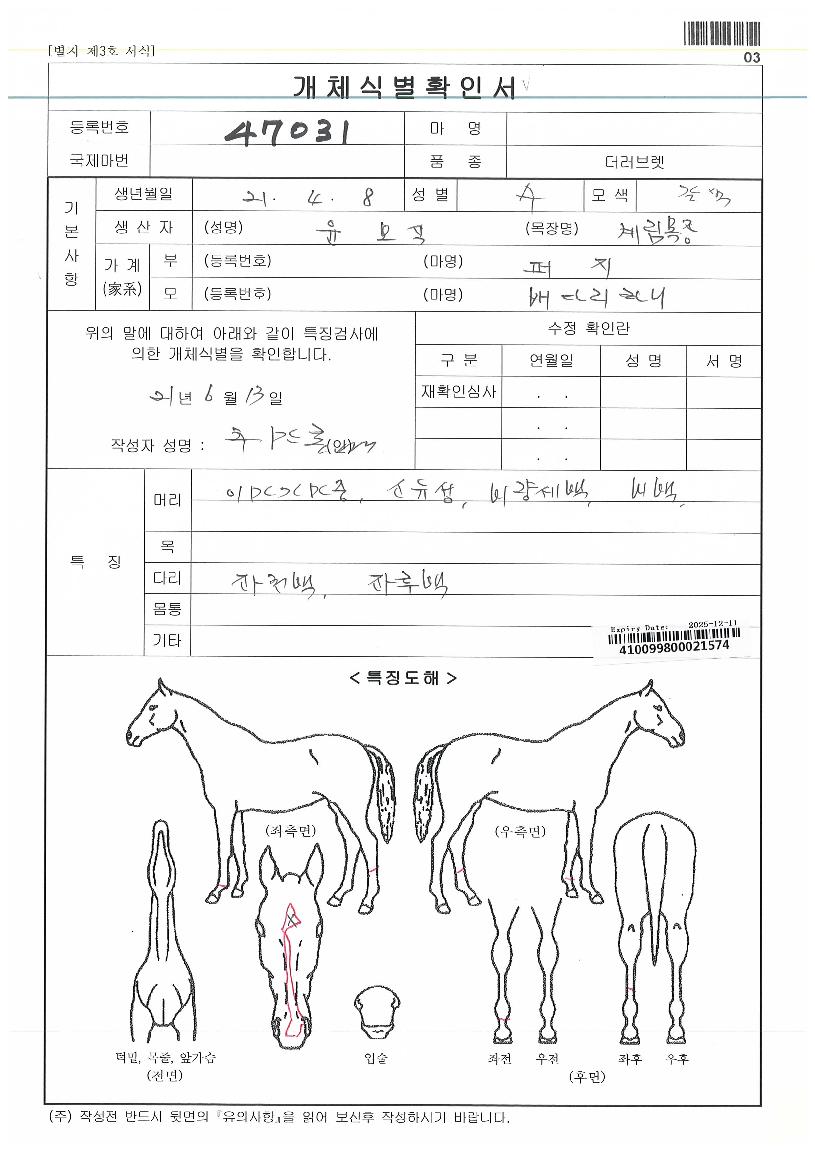 [별지 제3호 서식]
03
개체식별확인서
등록번호 47031 마 명
국제마번 품 종 더러브렛
기본사항
생년월일 21. 4. 8 성별 수 모색
생산자 (성명) 윤 (목장명) 체림목장
가계(家系) 부 (등록번호) (마명) 퍼지
모 (등록번호) (마명)
위의 말에 대하여 아래와 같이 특징검사에
의한 개체식별을 확인합니다.
21년 6월 13일
작성자 성명 :
수정 확인란
구분 연월일 성명 서명
재확인심사 . .
. .
. .
특 징
머리 비량세백, 비백,
목
다리 좌전백, 좌후백
몸통
기타
Expiry Date: 2025-12-11
410099800021574
< 특징도해 >
(좌측면) (우측면)
턱밑, 목줄, 앞가슴 입술 좌전 우전 좌후 우후
(전면) (후면)
(주) 작성전 반드시 뒷면의 『유의사항』을 읽어 보신후 작성하시기 바랍니다.